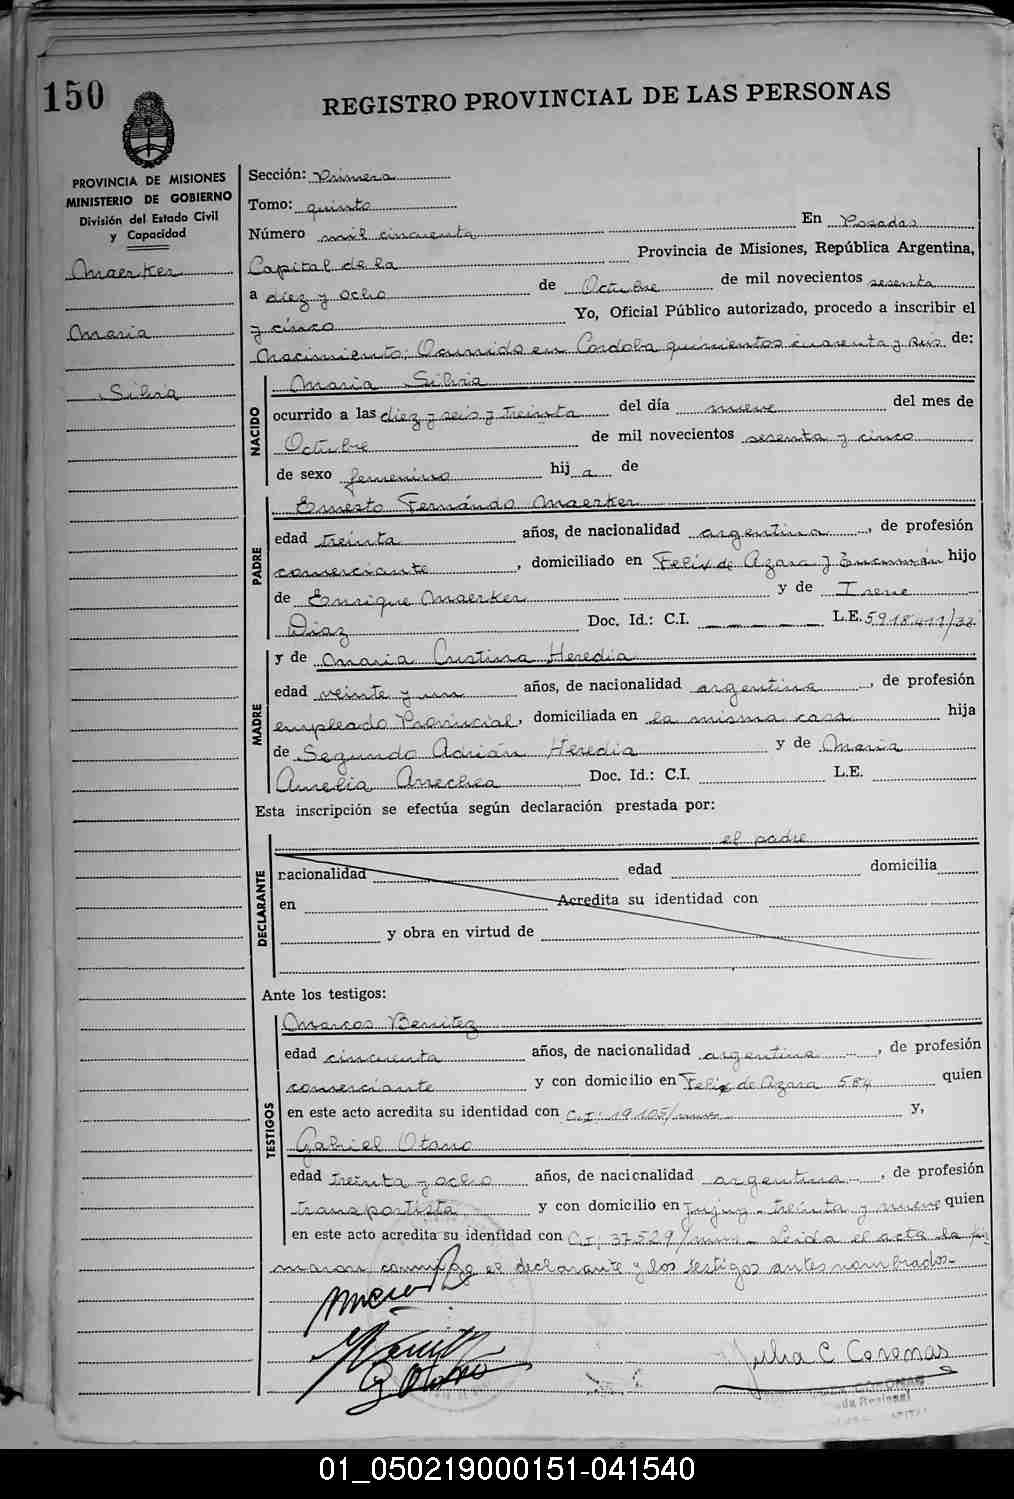 150
REGISTRO PROVINCIAL DE LAS PERSONAS
PROVINCIA DE MISIONES
MINISTERIO DE GOBIERNO
División del Estado Civil
y Capacidad
Maerker
Maria
Silvia
Sección: Primera
Tomo: quinto
Número mil cincuenta En Posadas
Capital de la Provincia de Misiones, República Argentina,
a diez y ocho de Octubre de mil novecientos sesenta
y cinco Yo, Oficial Público autorizado, procedo a inscribir el
Nacimiento; Ocurrido en Cordoba quinientos cuarenta y seis de:
NACIDO
Maria Silvia
ocurrido a las diez y seis y treinta del día nueve del mes de
Octubre de mil novecientos sesenta y cinco
de sexo femenino hij a de
PADRE
Ernesto Fernándo Maerker
edad treinta años, de nacionalidad argentina, de profesión
comerciante, domiciliado en Felix de Azara y hijo
de Enrique Maerker y de Irene
Diaz Doc. Id.: C.I. — — — — L.E.
MADRE
y de Maria Cristina Heredia
edad veinte y un años, de nacionalidad argentina, de profesión
empleado Provincial, domiciliada en la misma casa hija
de Segundo Adrián Heredia y de Maria
Aurelia Arrechea Doc. Id.: C.I. L.E.
Esta inscripción se efectúa según declaración prestada por:
DECLARANTE
el padre
nacionalidad edad domicilia
en Acredita su identidad con
y obra en virtud de
Ante los testigos:
TESTIGOS
Marcos Benitez
edad cincuenta años, de nacionalidad argentina, de profesión
comerciante y con domicilio en Felix de Azara 584 quien
en este acto acredita su identidad con C.I: 19.105/ y,
Gabriel Otano
edad treinta y ocho años, de nacionalidad argentina, de profesión
transportista y con domicilio en Jujuy treinta y nueve quien
en este acto acredita su identidad con C.I: 37.529/ Leida el acta la fir
maron conmigo el declarante y los testigos antes nombrados.
Julia C Coronas
01_050219000151-041540